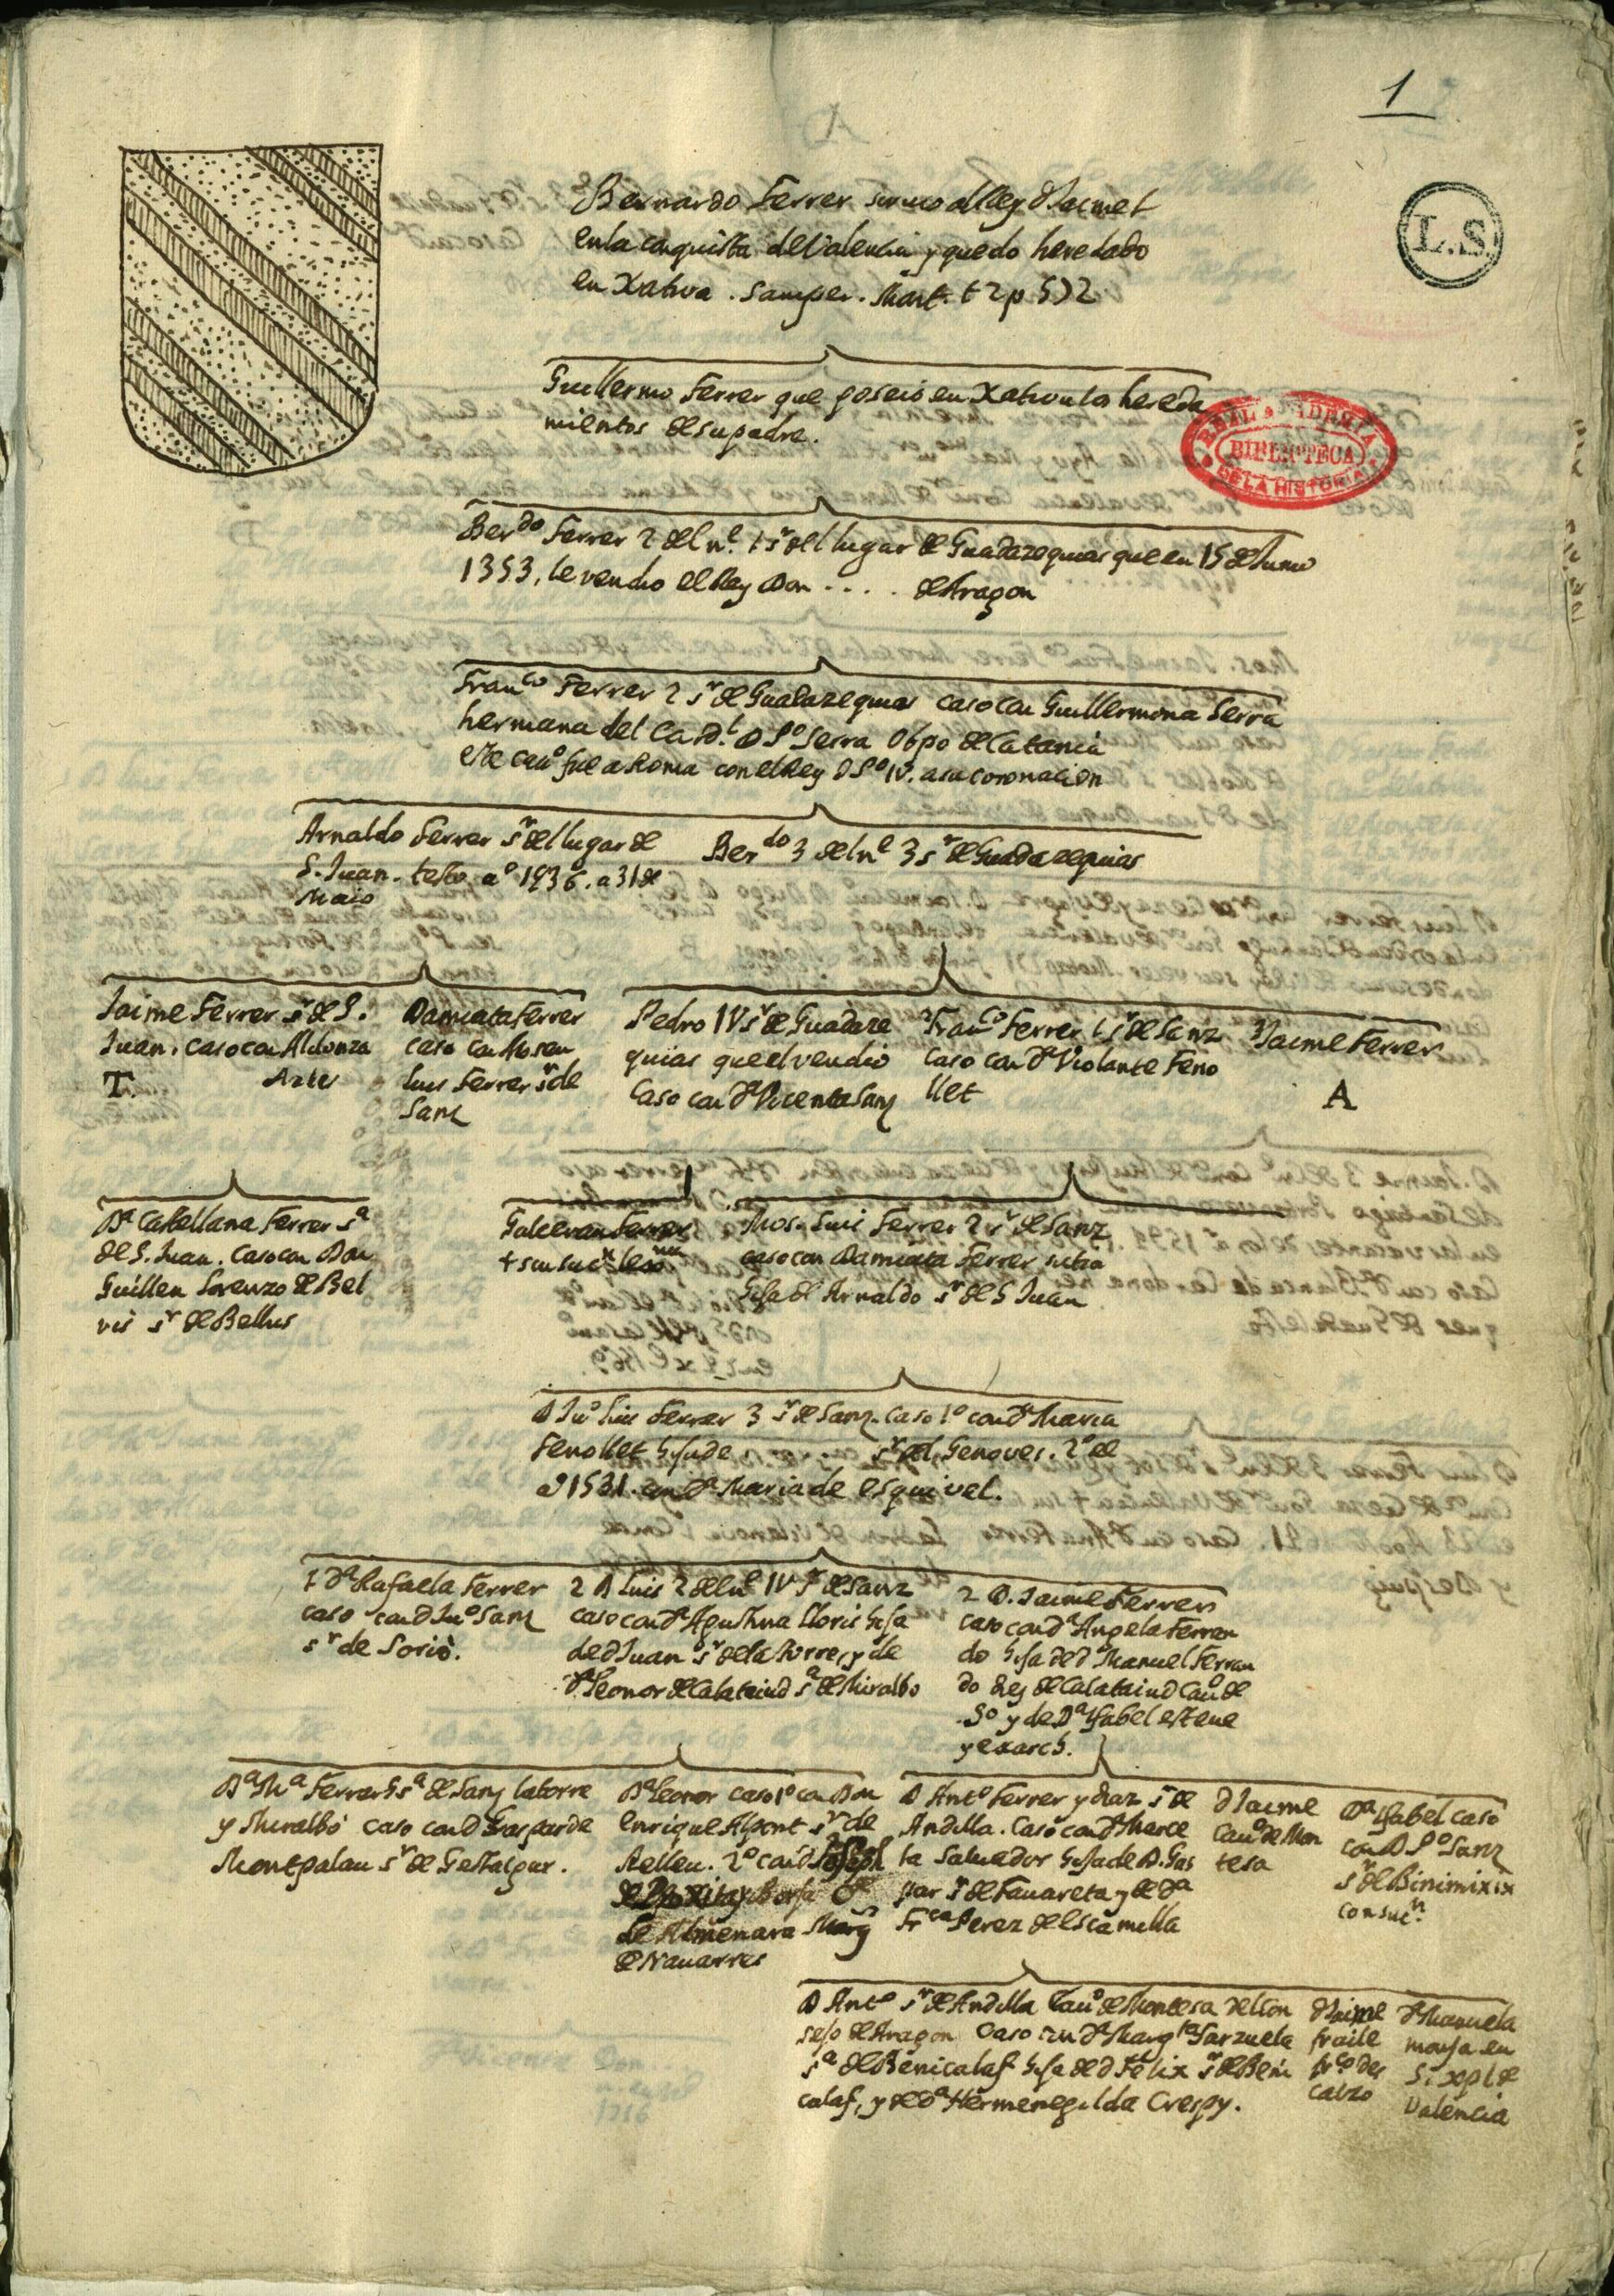 1
L.S.
Bernardo Ferrer sirvio al Rey d Jaime 1
en la conquista de Valencia y quedo heredado
en Xativa . Samper . Mont. t 2 p 572
Guillermo Ferrer que poseió en Xativa los hereda
mientos de su padre.
REAL ACADEMIA
BIBLIOTECA
DE LA HISTORIA
Ber.do Ferrer 2 del n.e 1 s.r del lugar de Guadazequias que en 15 de Junio
1353, le vendio el Rey Don .... de Aragon
Fran.co Ferrer 2 s.r de Guadazequias caso con Guillermona Serra
hermana del Card.l D P.o Serra Obpo de Catania
este cau.o fue a Roma con el Rey d P.o IV. a su coronacion
Arnaldo Ferrer s.r del lugar de
S. Juan. testo a.o 1436. a 31 de
Maio
Ber.do 3 del n.e 3 s.r de Guadazequias
Jaime Ferrer s.r de S.
Juan. caso con Aldonza
T.
Damiata Ferrer
caso con Mosen
Luis Ferrer s.r de
Sanz
Pedro IV s.r de Guadaze
quias que el vendio
Caso con d.a Vicenta Sanz
2 Fran.co Ferrer 1 s.r de Sanz
caso con d.a Violante Feno
llet
3 Jaime Ferrer
A
D.a Castellana Ferrer s.a
de S. Juan. Caso con Don
Guillen Lorenzo de Bel
vis s.r de Bellus
Galceran Ferrer
+ sin suc.n
Mos. Luis Ferrer 2 s.r de Sanz
caso con Damiata Ferrer su tia
hija de Arnaldo s.r de S Juan
D Ju.o Luis Ferrer 3 s.r de Sanz. Caso 1.o con d.a Maria
Fenollet hija de s.r del Genoves. 2.o el
a 1531. con d.a Maria de Esquivel.
1 d.a Rafaela Ferrer
caso con d Ju.o Sanz
s.r de Sorió.
2 D Luis 2 del n.e IV s.r de Sanz
caso con d.a Agustina Lloris hija
de d Juan s.r de la torre, y de
d.a Leonor de Calataiud s.a de Miralbo
2 D. Jaime Ferrer
caso con d.a Angela Ferran
do hija de d Manuel Ferran
do Diez de Calataiud Cau.o de
S.o y de D.a Isabel esteve
y exarch.
D.a M.a Ferrer s.a de Sanz la torre
y Miralbó caso con d Gaspar de
Montpalau s.r de Gestalgar.
D.a Leonor caso 1.o con Don
Enrique Alpont s.r de
Relleu. 2.o con d Joseph
de Almenara Marq.s
de Navarres
D Ant.o Ferrer y Diaz s.r de
Andilla. caso con d.a Marce
la Salvador hija de D. Gas
par s.r de Favareta y de d.a
Fr.ca Perez de Escamilla
d Jaime
Cau.o de Mon
tesa
D.a Isabel caso
con D P.o Sanz
s.r de Binimixix
con suc.n
D Ant.o s.r de Andilla Cau.o de Montesa del Con
sejo de Aragon Caso con d.a Marg.ta Sarzuela
s.a de Benicalaf hija de d Felix s.r de Beni
calaf, y de d.a Hermenegilda Crespy.
d Jaime
fraile
fr.co des
calzo
d.a Manuela
monja en
S. xpl de
Valencia